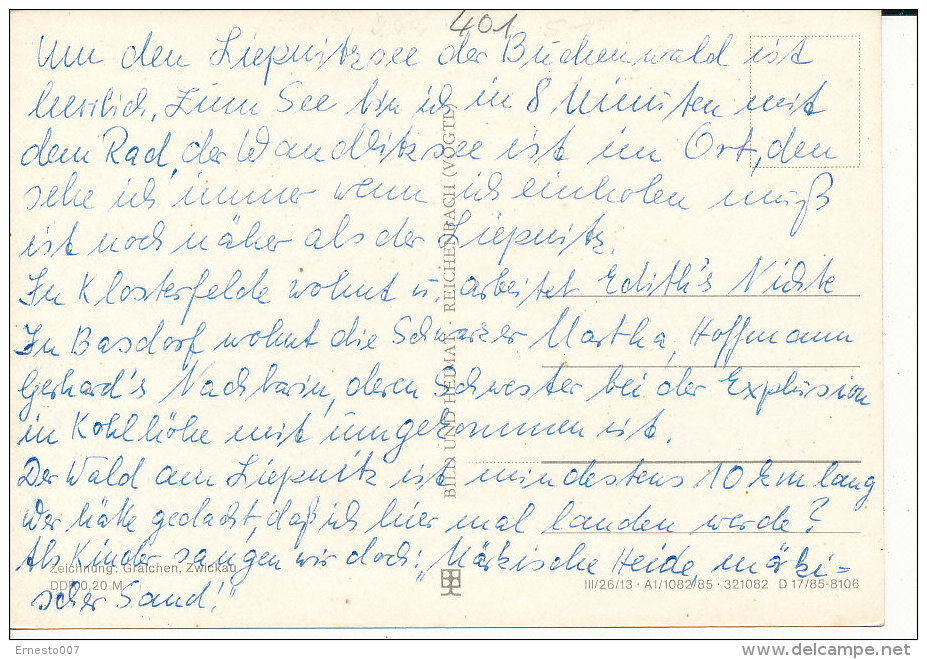 401
Um den Liepnitzsee der Buchenwald ist
herrlich, Zum See bin ich in 8 Minuten mit
dem Rad, der Wandlitzsee ist im Ort, den
sehe ich immer wenn ich einholen muß
ist noch näher als der Liepnitz.
In Klosterfelde wohnt u. arbeitet Edith's Nichte
In Basdorf wohnt die Schwarzer Martha, Hoffmann
Gerhard's Nachbarin, deren Schwester bei der Explosion
in Kohlhöhe mit umgekommen ist.
Der Wald am Liepnitz ist mindestens 10 km lang
Wer hätte gedacht, daß ich hier mal landen werde?
Als Kinder sangen wir doch: „Märkische Heide, märki=
scher Sand!"
BILD UND HEIMAT REICHENBACH (VOGTL)
Zeichnung: Gralchen, Zwickau
DDR 0,20 M
III/26/13 · A1/1082/85 · 321082 D 17/85-8106
Ernesto007
delcampe.net